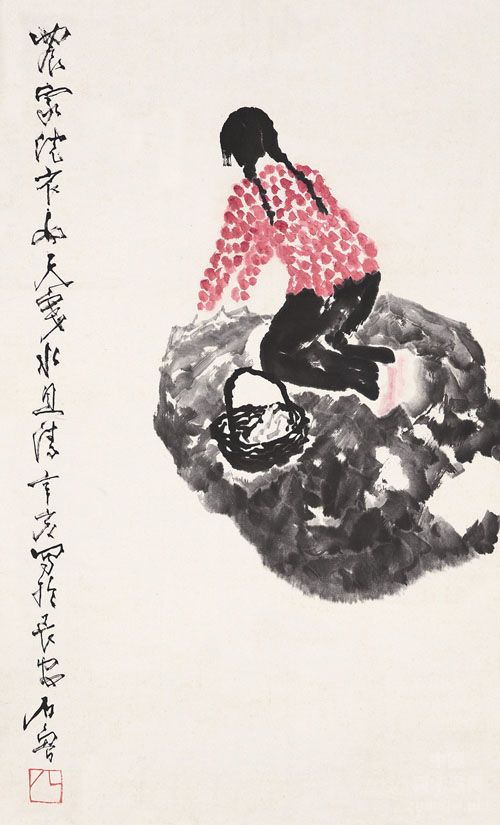 農家浣衣女天水且清辛亥寫於長安石魯